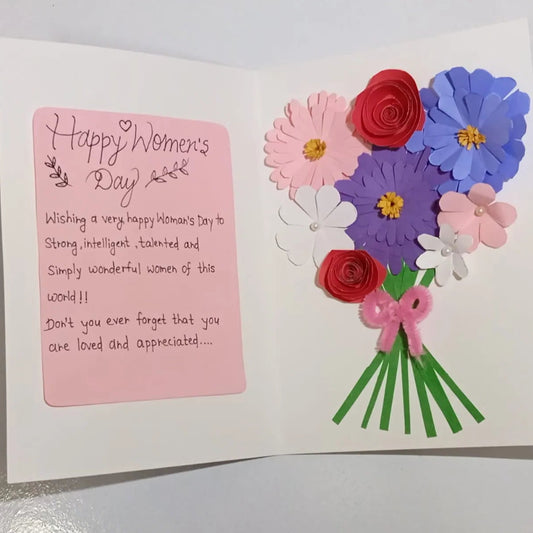 Happy Women's
Day
Wishing a very happy Woman's Day to
Strong, intelligent, talented and
Simply wonderful women of this
world!!
Don't you ever forget that you
are loved and appreciated....